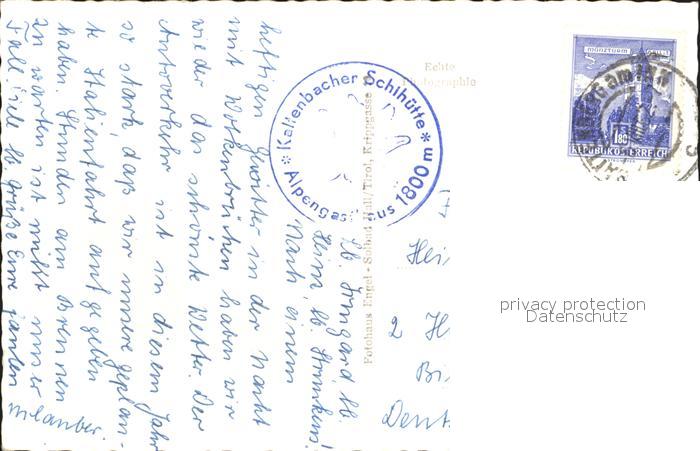 Lb. Irmgard, lb.
Heini, lb.
Nach einem
heftigen Gewitter in der Nacht
mit Wolkenbrüchen haben wir
wieder das schönste Wetter. Der
Autoverkehr ist in diesem Jahr
so stark, daß wir unsere geplan-
te Italienfahrt aufgegeben
haben. Stunden am Brenner
zu warten ist nicht unser
Fall. Viele lb Grüße Eure
Kaltenbacher Schihütte
Alpengasthaus 1800 m
Echte
Photographie
Fotohaus Engel - Solbad Hall/Tirol, Krippgasse
MÜNZTURM
HALL i. T.
S 1.80
REPUBLIK ÖSTERREICH
Hei
2 H
Deut
privacy protection
Datenschutz